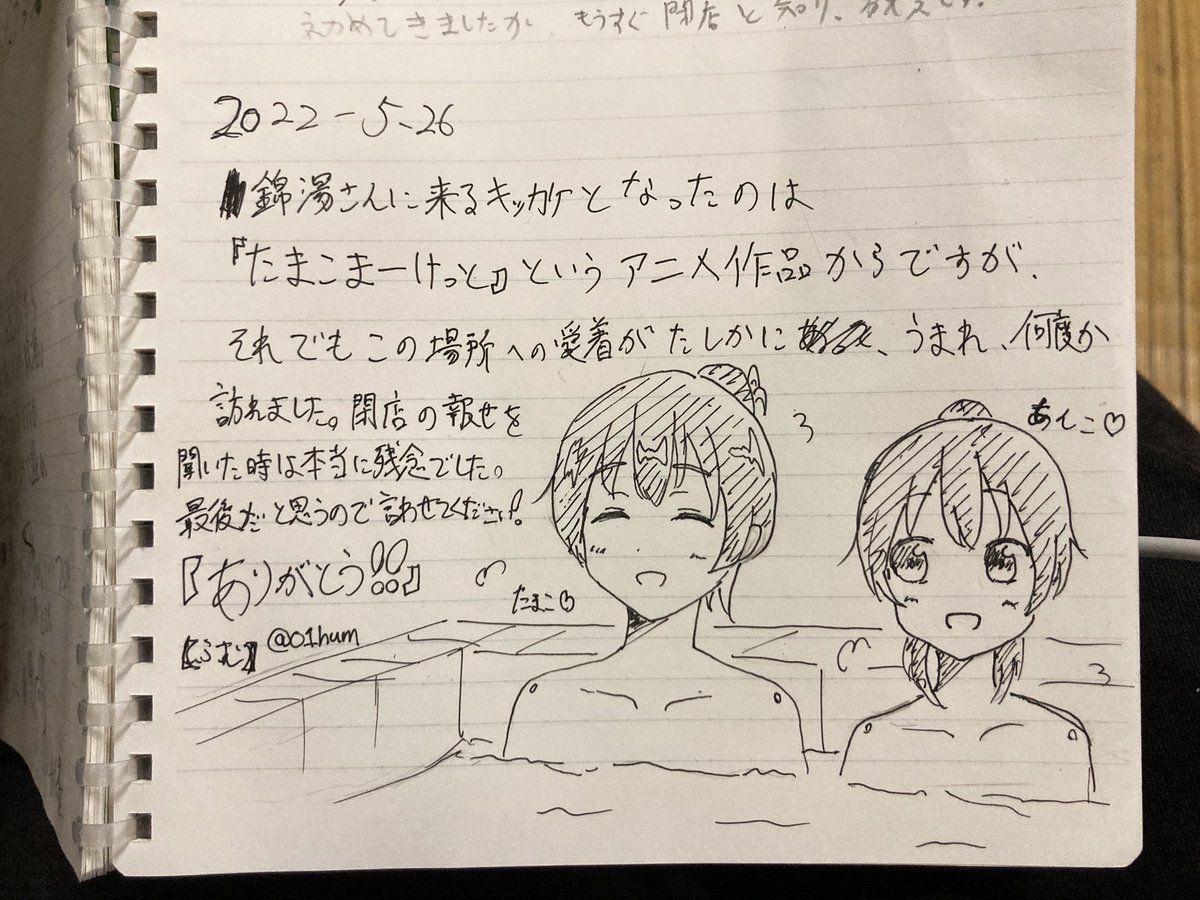 初めてきましたが、もうすぐ閉店と知り、
2022-5-26
錦湯さんに来るキッカケとなったのは
『たまこまーけっと』というアニメ作品からですが、
それでもこの場所への愛着がたしかに、うまれ、何度か
訪れました。閉店の報せを
聞いた時は本当に残念でした。
最後だと思うので言わせてください!
『ありがとう!!』
【らむ】@01hum
たまこ♡
あんこ♡